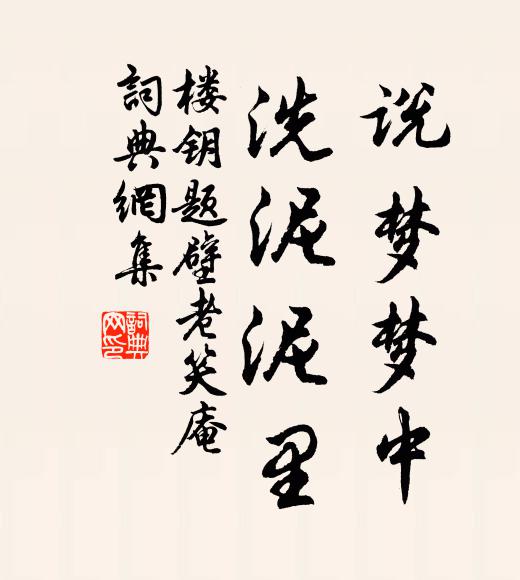 说梦梦中
洗泥泥里
楼钥题壁老笑庵
詞典網集
詞典网印